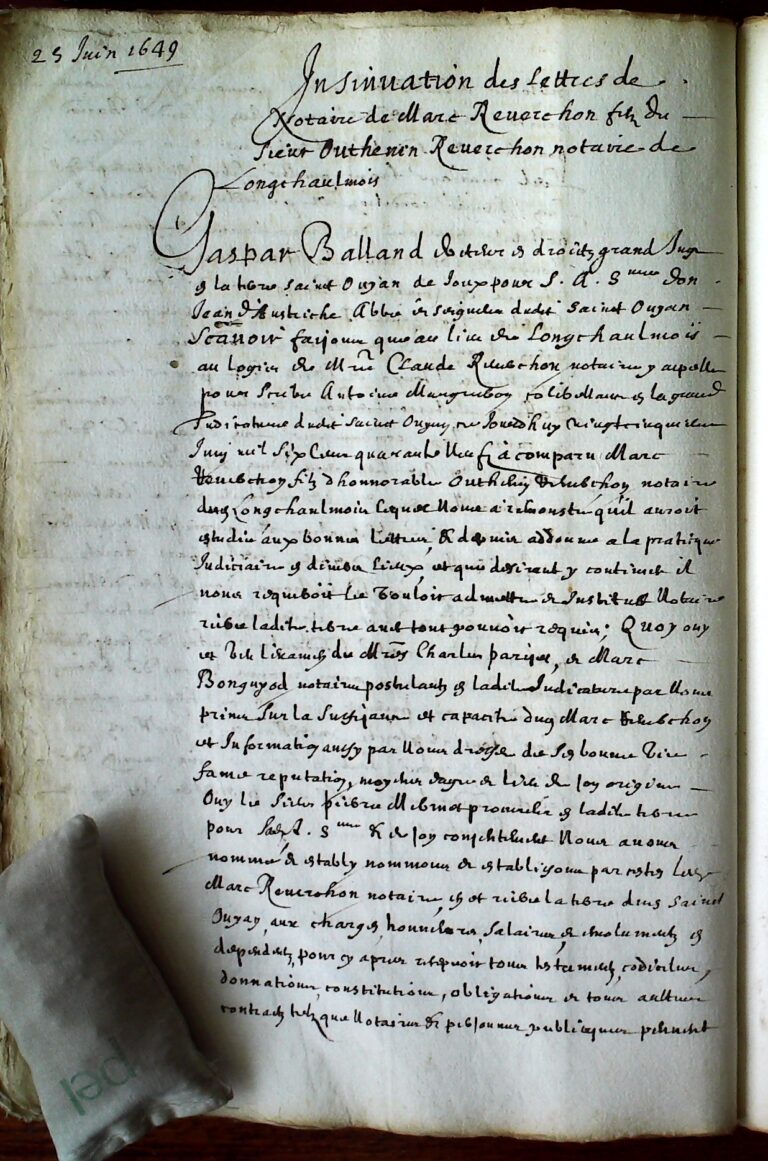 25 Juin 1649
Insinuation des lettres de
Notaire de Marc Reverchon filz du
sieur Outhenin Reverchon notaire de
Longchaulmois
Gaspar Balland docteur es droictz, grand Juge
en la terre Sainct Ouyan de Joux pour S. A. S.me don
Jean d'Austriche Abbé et seigneur dudit Sainct Ouyan
Scavoir faisons que au lieu de Longchaulmois
au logis de Mre Claude Reverchon notaire y appellé
pour scribe Antoine en la grand
Judicature dudit sainct Ouyan, ce Jourdhuy vingtcinquieme
Juin mil six cent quarante neuf, a comparu Marc
Reverchon filz d'honnorable Outhenin Reverchon notaire
dud. Longchaulmois lequel Nous a remonstré qu'il auroit
estudié aux bonnes lettres, & depuis addonné a la pratique
Judiciaire en divers lieux, et que desirant y continuer il
nous requeroit le vouloir admettre et Instituer Notaire
riere ladite terre avec tout pouvoir requis; Quoy ouy
et veu de Mres Charles et Marc
Bonguyod notaires postulants en ladite Judicature par Nous
prins sur la suffisance et capacité dud. Marc Reverchon
et Information aussy par Nous de ses bonne vie
fame reputation, moyens eage et lieu de son origine
Ouy le sieur pierre procureur en ladite terre
pour sad. A. S.me & de son consentement Nous avons
nommé & estably nommons et establissons par cestes led.
Marc Reverchon notaire en et riere la terre dud. Sainct
Ouyan, aux charges, honneurs, salaires, et emolumentz en
dependentz, pour cy apres recepvoir tous testamentz, codicilles,
donnations, constitutions, obligations et tous aultres
contractz telz que Notaires & personnes publicques peuvent
pel